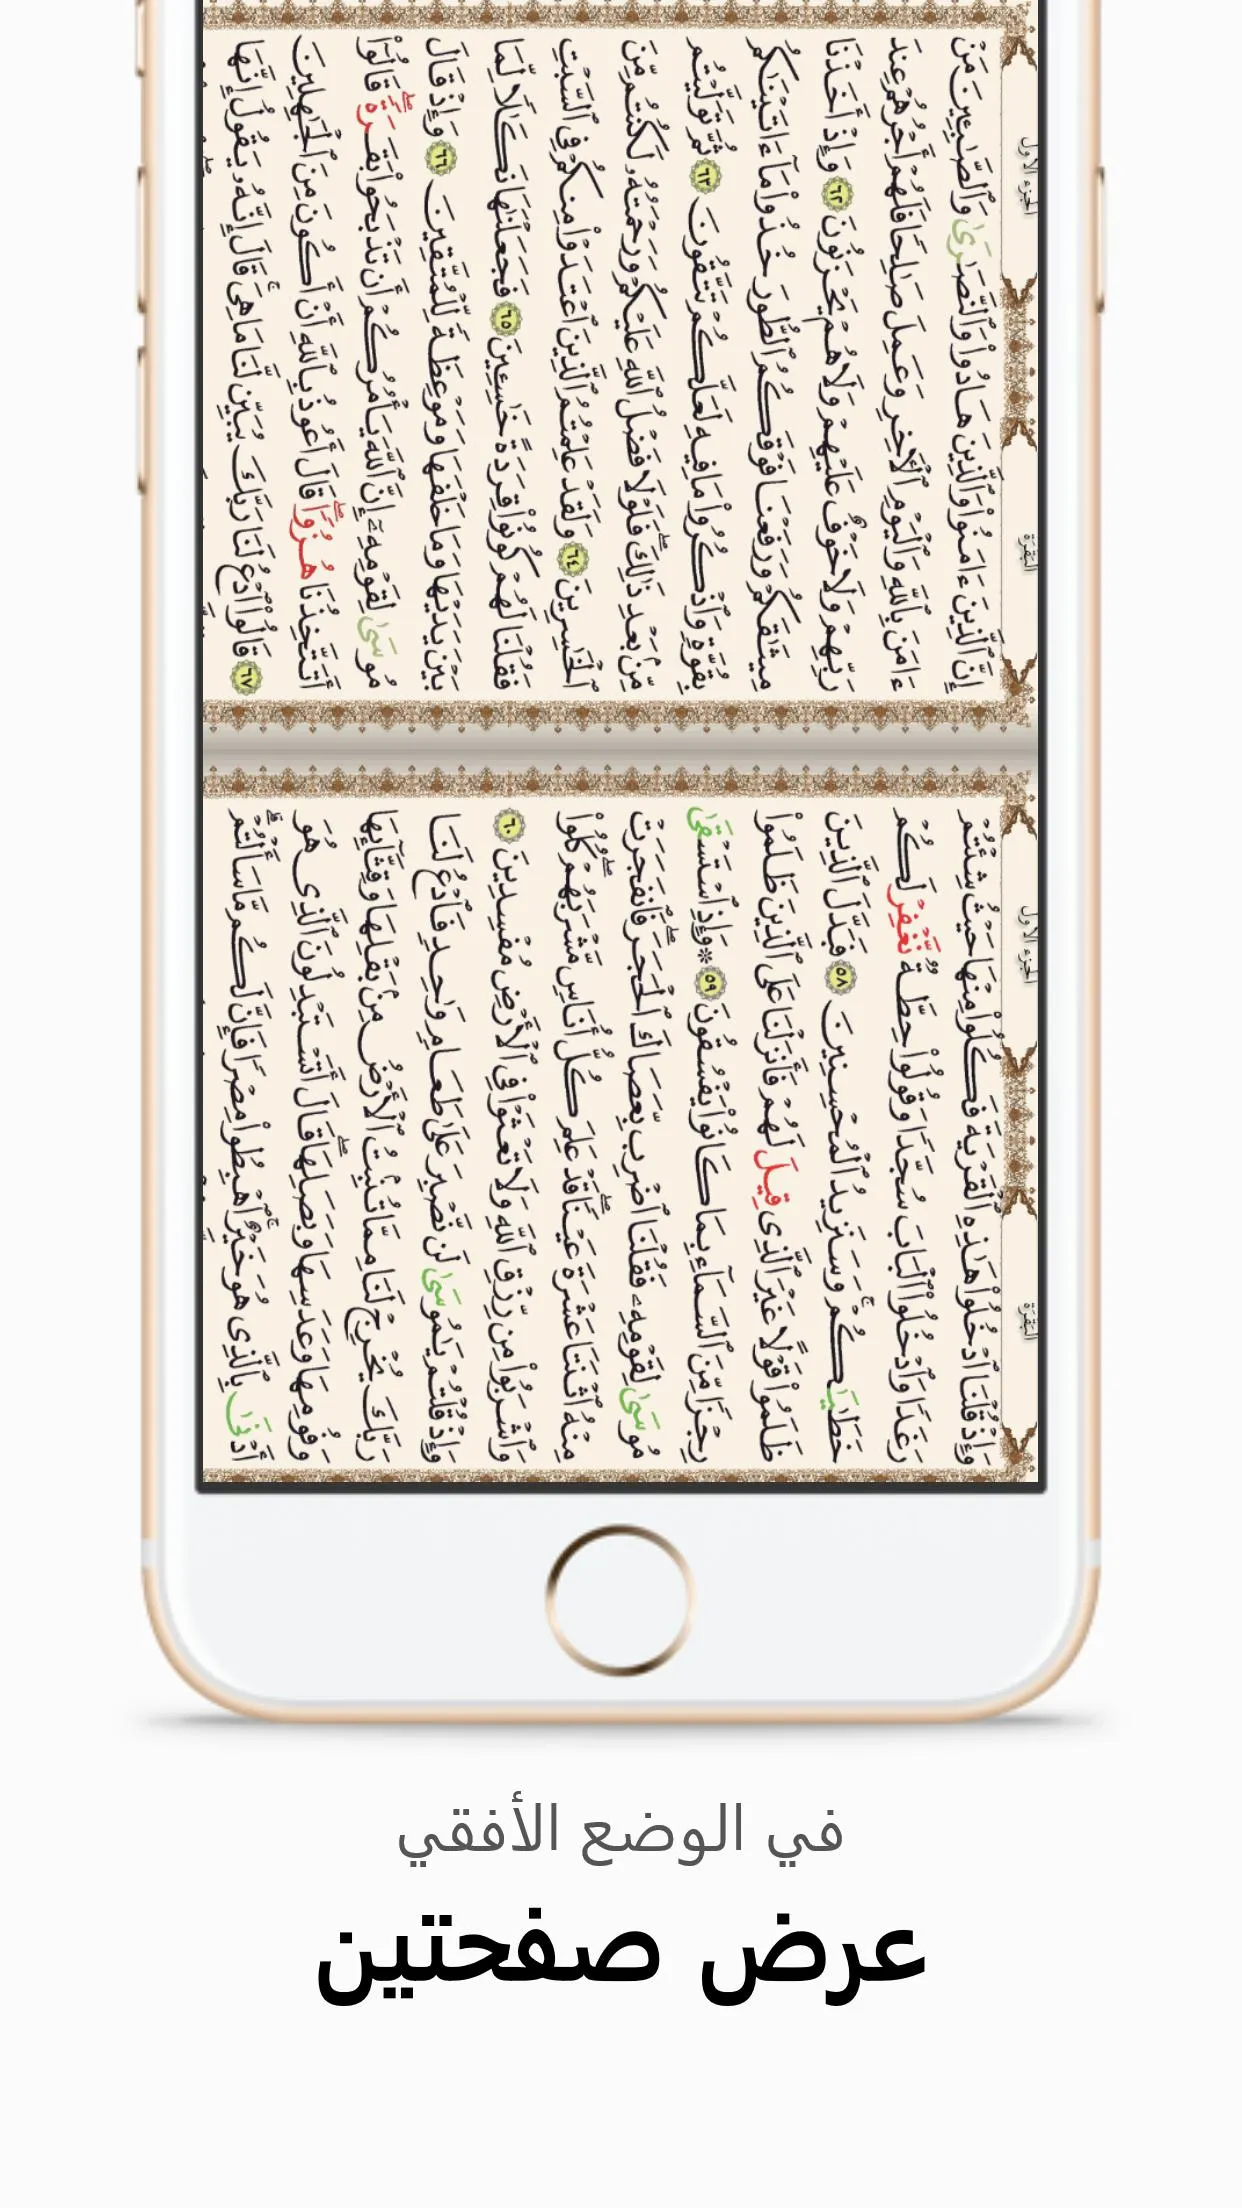 في الوضع الأفقي
عرض صفحتين
البَقَرَة الجزء الأول
وَإِذْ قُلْنَا ٱدْخُلُوا۟ هَٰذِهِ ٱلْقَرْيَةَ فَكُلُوا۟ مِنْهَا حَيْثُ شِئْتُمْ
رَغَدًا وَٱدْخُلُوا۟ ٱلْبَابَ سُجَّدًا وَقُولُوا۟ حِطَّةٌ نَّغْفِرْ لَكُمْ
خَطَٰيَٰكُمْ ۚ وَسَنَزِيدُ ٱلْمُحْسِنِينَ ٥٨ فَبَدَّلَ ٱلَّذِينَ
ظَلَمُوا۟ قَوْلًا غَيْرَ ٱلَّذِى قِيلَ لَهُمْ فَأَنزَلْنَا عَلَى ٱلَّذِينَ ظَلَمُوا۟
رِجْزًا مِّنَ ٱلسَّمَآءِ بِمَا كَانُوا۟ يَفْسُقُونَ ٥٩ * وَإِذِ ٱسْتَسْقَىٰ
مُوسَىٰ لِقَوْمِهِۦ فَقُلْنَا ٱضْرِب بِّعَصَاكَ ٱلْحَجَرَ ۖ فَٱنفَجَرَتْ
مِنْهُ ٱثْنَتَا عَشْرَةَ عَيْنًا ۖ قَدْ عَلِمَ كُلُّ أُنَاسٍ مَّشْرَبَهُمْ ۖ كُلُوا۟
وَٱشْرَبُوا۟ مِن رِّزْقِ ٱللَّهِ وَلَا تَعْثَوْا۟ فِى ٱلْأَرْضِ مُفْسِدِينَ ٦٠
وَإِذْ قُلْتُمْ يَٰمُوسَىٰ لَن نَّصْبِرَ عَلَىٰ طَعَامٍ وَٰحِدٍ فَٱدْعُ لَنَا
رَبَّكَ يُخْرِجْ لَنَا مِمَّا تُنۢبِتُ ٱلْأَرْضُ مِنۢ بَقْلِهَا وَقِثَّآئِهَا
وَفُومِهَا وَعَدَسِهَا وَبَصَلِهَا ۖ قَالَ أَتَسْتَبْدِلُونَ ٱلَّذِى هُوَ
أَدْنَىٰ بِٱلَّذِى هُوَ خَيْرٌ ۚ ٱهْبِطُوا۟ مِصْرًا فَإِنَّ لَكُم مَّا سَأَلْتُمْ ۗ
البَقَرَة الجزء الأول
إِنَّ ٱلَّذِينَ ءَامَنُوا۟ وَٱلَّذِينَ هَادُوا۟ وَٱلنَّصَٰرَىٰ وَٱلصَّٰبِـِٔينَ مَنْ
ءَامَنَ بِٱللَّهِ وَٱلْيَوْمِ ٱلْأَخِرِ وَعَمِلَ صَٰلِحًا فَلَهُمْ أَجْرُهُمْ عِندَ
رَبِّهِمْ وَلَا خَوْفٌ عَلَيْهِمْ وَلَا هُمْ يَحْزَنُونَ ٦٢ وَإِذْ أَخَذْنَا
مِيثَٰقَكُمْ وَرَفَعْنَا فَوْقَكُمُ ٱلطُّورَ خُذُوا۟ مَآ ءَاتَيْنَٰكُم
بِقُوَّةٍ وَٱذْكُرُوا۟ مَا فِيهِ لَعَلَّكُمْ تَتَّقُونَ ٦٣ ثُمَّ تَوَلَّيْتُم
مِّنۢ بَعْدِ ذَٰلِكَ ۖ فَلَوْلَا فَضْلُ ٱللَّهِ عَلَيْكُمْ وَرَحْمَتُهُۥ لَكُنتُم مِّنَ
ٱلْخَٰسِرِينَ ٦٤ وَلَقَدْ عَلِمْتُمُ ٱلَّذِينَ ٱعْتَدَوْا۟ مِنكُمْ فِى ٱلسَّبْتِ
فَقُلْنَا لَهُمْ كُونُوا۟ قِرَدَةً خَٰسِـِٔينَ ٦٥ فَجَعَلْنَٰهَا نَكَٰلًا لِّمَا
بَيْنَ يَدَيْهَا وَمَا خَلْفَهَا وَمَوْعِظَةً لِّلْمُتَّقِينَ ٦٦ وَإِذْ قَالَ
مُوسَىٰ لِقَوْمِهِۦٓ إِنَّ ٱللَّهَ يَأْمُرُكُمْ أَن تَذْبَحُوا۟ بَقَرَةً ۖ قَالُوٓا۟
أَتَتَّخِذُنَا هُزُؤًا ۖ قَالَ أَعُوذُ بِٱللَّهِ أَنْ أَكُونَ مِنَ ٱلْجَٰهِلِينَ
٦٧ قَالُوا۟ ٱدْعُ لَنَا رَبَّكَ يُبَيِّن لَّنَا مَا هِىَ ۚ قَالَ إِنَّهُۥ يَقُولُ إِنَّهَا